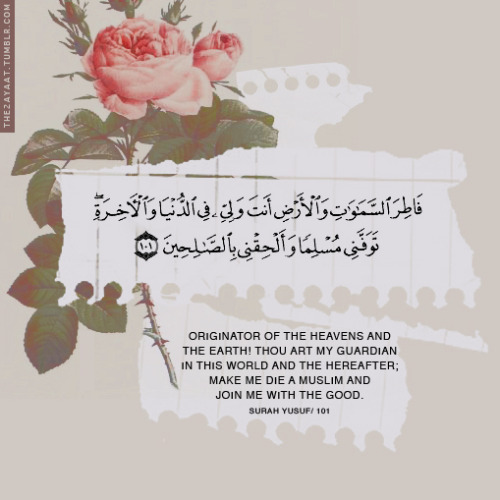 THE2AYAAT.TUMBLR.COM
فَاطِرَ ٱلسَّمَٰوَٰتِ وَٱلْأَرْضِ أَنتَ وَلِيِّۦ فِى ٱلدُّنْيَا وَٱلْآخِرَةِۖ
تَوَفَّنِى مُسْلِمًا وَأَلْحِقْنِى بِٱلصَّٰلِحِينَ ١٠١
ORIGINATOR OF THE HEAVENS AND
THE EARTH! THOU ART MY GUARDIAN
IN THIS WORLD AND THE HEREAFTER;
MAKE ME DIE A MUSLIM AND
JOIN ME WITH THE GOOD.
SURAH YUSUF/ 101